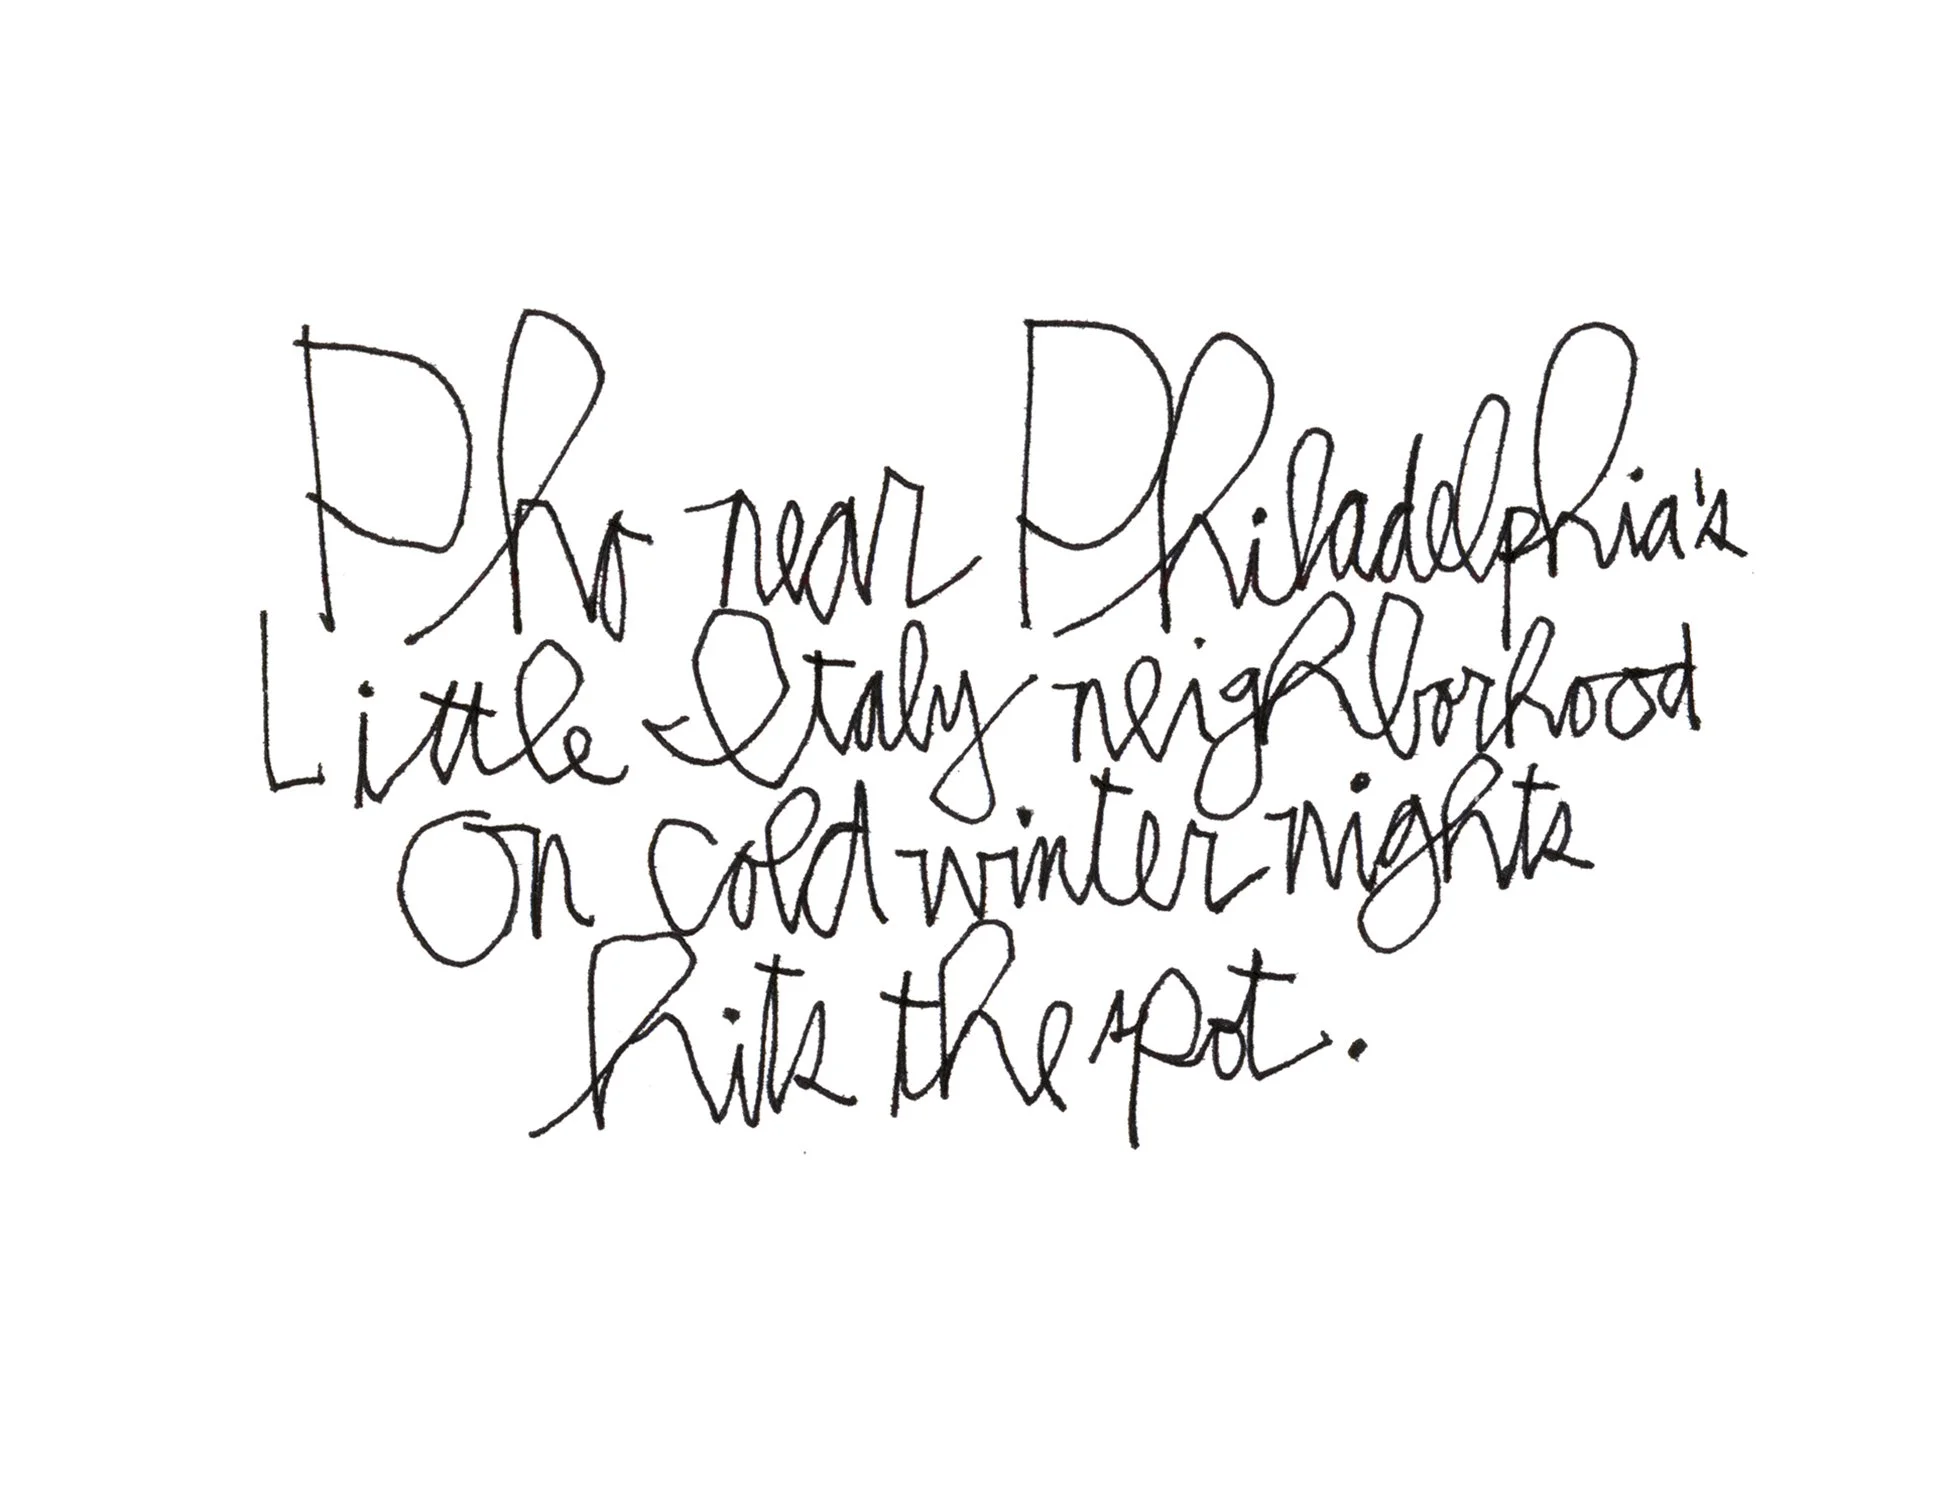 Pho near Philadelphia's
Little Italy neighborhood
on cold winter nights
hits the spot.